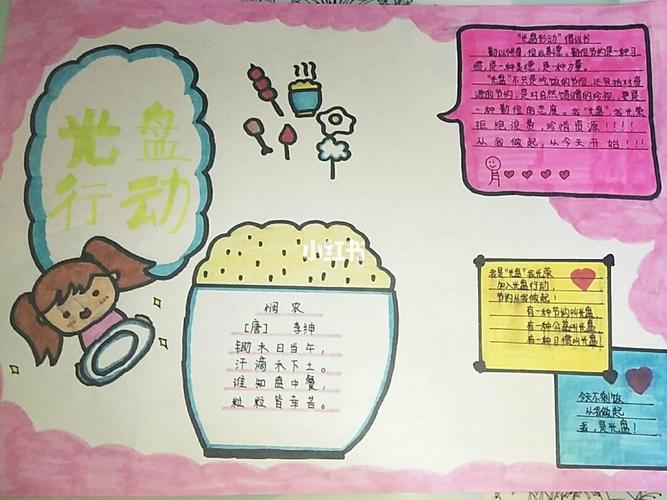 光盘
行动
"光盘行动"倡议书
勤以修身，俭以养德。勤俭节约是一种习
惯，是一种美德，是一种力量。
"光盘"不只是吃饭的节俭，还包括对资
源的节约，是对自然馈赠的珍视，更是
一种勤俭的态度。我"光盘"，我光荣
拒绝浪费，珍惜资源！！！！
从我做起，从今天开始！！！
小红书
悯农
[唐] 李绅
锄禾日当午，
汗滴禾下土。
谁知盘中餐，
粒粒皆辛苦。
我是"光盘"我光荣
加入光盘行动，
节约从我做起！
有一种节约叫光盘，
有一种公益叫光盘，
有一种习惯叫光盘！
今天不剩饭
从我做起
我，是光盘！